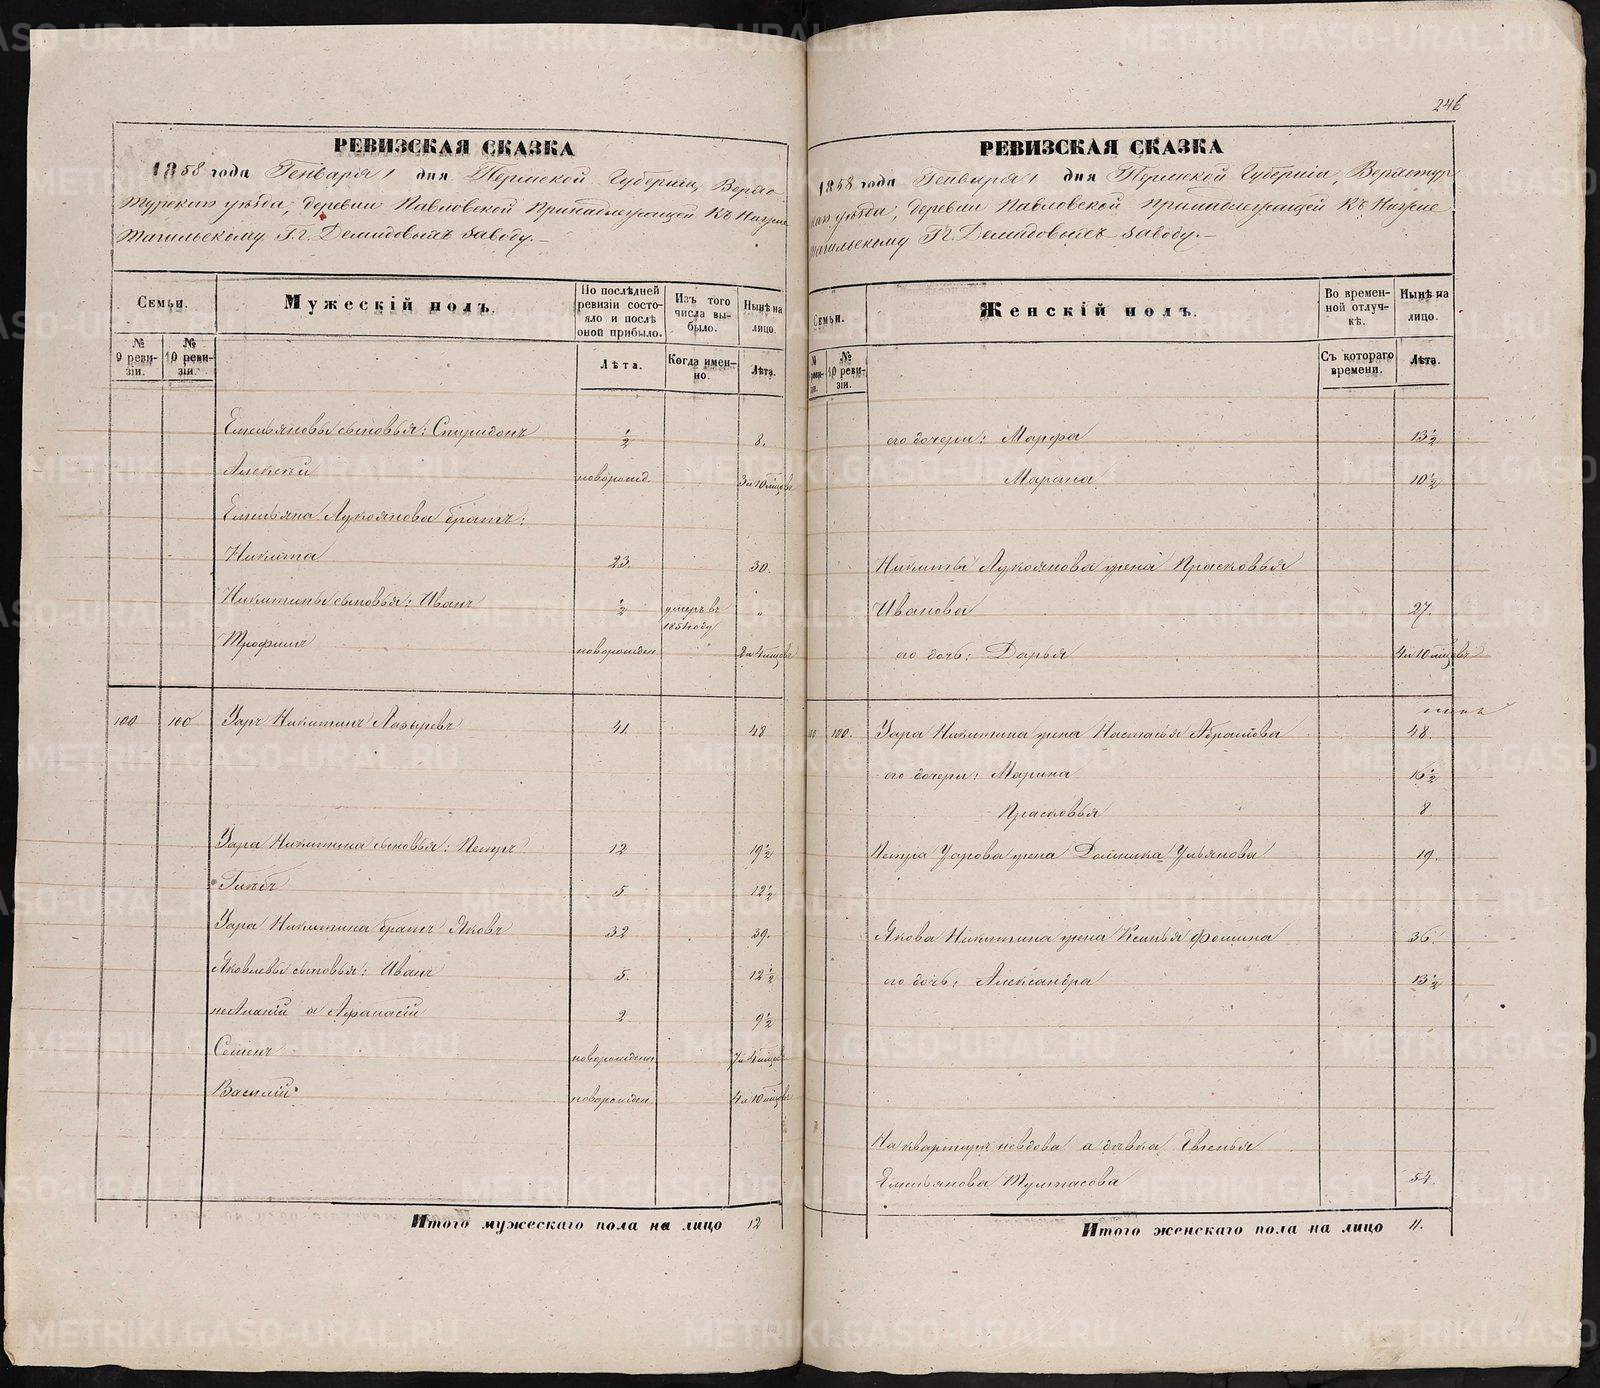 246
РЕВИЗСКАЯ СКАЗКА
1858 года Генваря 1 дня Пермской Губернии, Верхо
турскаго уѣзда, деревни Павловской принадлежащей Къ Нижне
тагильскому Г.г. Демидовыхъ заводу.
Семьи.
Мужескій полъ.
По послѣдней ревизіи состояло и послѣ оной прибыло.
Изъ того числа выбыло.
Нынѣ на лицо.
№ 9 ревизіи.
№ 10 ревизіи.
Лѣта.
Когда именно.
Лѣта.
Емельяновы сыновья: Спиридонъ ½ 8.
Алексѣй новорожд. 3 и 10 мѣсцовъ
Емельяна Лукоянова братъ:
Никита 23. 30.
Никитины сыновья: Иванъ ½ умеръ въ 1851 году "
Трофимъ новорожден 2 и 4 мѣсцовъ
100 100 Уаръ Никитинъ 41. 48
Уара Никитина сыновья: Петръ 12 19½
Глѣбъ 5 12½
Уара Никитина братъ Яковъ 32 39.
Яковлевы сыновья: Иванъ 5. 12½
неАнаній а Афанасій 2 9½
Семенъ новорожден 7 и 4 мѣсцов
Василій новорожден 4 и 10 мѣсцовъ
Итого мужескаго пола на лицо 12
РЕВИЗСКАЯ СКАЗКА
1858 года Генваря 1 дня Пермской Губерніи, Верхотур
скаго уѣзда, деревни Павловской принадлежащей Къ Нижне
тагильскому Г.г. Демидовыхъ заводу.
Семьи.
Женскій полъ.
Во временной отлучкѣ.
Нынѣ на лицо.
№ ревизіи.
№ 10 ревизіи.
Съ котораго времени.
Лѣта.
его дочери: Марфа 13½
Марина 10½
Никиты Лукоянова жена Прасковья
Иванова 27.
его дочь: Дарья 4 и 10 мѣсцовъ
100. Уара Никитина жена Настасья Абрамова 48.
его дочери: Марина 16½
Прасковья 8
Петра Уарова жена Ульянова 19.
Якова Никитина жена Ксенья Фомина 36.
его дочь: Александра 13½
На квартире невдова а дѣвка Евгенья
Емельянова 54.
Итого женскаго пола на лицо 11.
METRIKI.GASO-URAL.RU